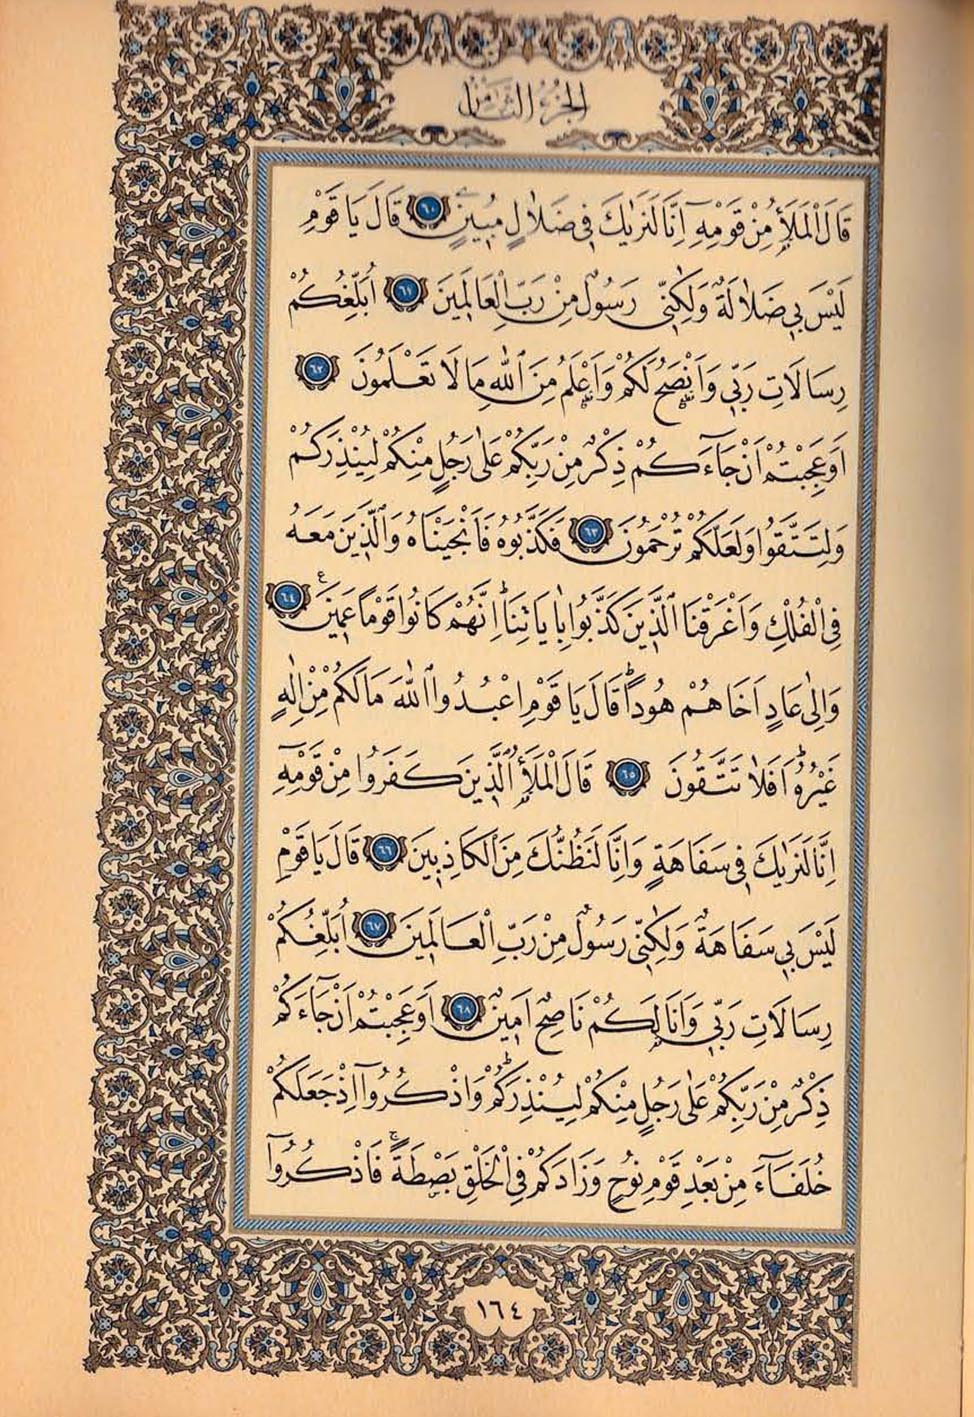 الجزء الثامن
قَالَ الْمَلَأُ مِنْ قَوْمِهِٓ اِنَّا لَنَرٰيكَ فِي ضَلَالٍ مُبِينٍ ٦٠ قَالَ يَا قَوْمِ
لَيْسَ بِي ضَلَالَةٌ وَلٰكِنِّي رَسُولٌ مِنْ رَبِّ الْعَالَمِينَ ٦١ اُبَلِّغُكُمْ
رِسَالَاتِ رَبِّي وَاَنْصَحُ لَكُمْ وَاَعْلَمُ مِنَ اللّٰهِ مَا لَا تَعْلَمُونَ ٦٢
اَوَعَجِبْتُمْ اَنْ جَٓاءَكُمْ ذِكْرٌ مِنْ رَبِّكُمْ عَلٰى رَجُلٍ مِنْكُمْ لِيُنْذِرَكُمْ
وَلِتَتَّقُوا وَلَعَلَّكُمْ تُرْحَمُونَ ٦٣ فَكَذَّبُوهُ فَاَنْجَيْنَاهُ وَالَّذِينَ مَعَهُ
فِي الْفُلْكِ وَاَغْرَقْنَا الَّذِينَ كَذَّبُوا بِاٰيَاتِنَاۜ اِنَّهُمْ كَانُوا قَوْمًا عَمِينَ ٦٤
وَاِلٰى عَادٍ اَخَاهُمْ هُودًاۜ قَالَ يَا قَوْمِ اعْبُدُوا اللّٰهَ مَا لَكُمْ مِنْ اِلٰهٍ
غَيْرُهُۜ اَفَلَا تَتَّقُونَ ٦٥ قَالَ الْمَلَأُ الَّذِينَ كَفَرُوا مِنْ قَوْمِهِٓ
اِنَّا لَنَرٰيكَ فِي سَفَاهَةٍ وَاِنَّا لَنَظُنُّكَ مِنَ الْكَاذِبِينَ ٦٦ قَالَ يَا قَوْمِ
لَيْسَ بِي سَفَاهَةٌ وَلٰكِنِّي رَسُولٌ مِنْ رَبِّ الْعَالَمِينَ ٦٧ اُبَلِّغُكُمْ
رِسَالَاتِ رَبِّي وَاَنَا لَكُمْ نَاصِحٌ اَمِينٌ ٦٨ اَوَعَجِبْتُمْ اَنْ جَٓاءَكُمْ
ذِكْرٌ مِنْ رَبِّكُمْ عَلٰى رَجُلٍ مِنْكُمْ لِيُنْذِرَكُمْۜ وَاذْكُرُٓوا اِذْ جَعَلَكُمْ
خُلَفَٓاءَ مِنْ بَعْدِ قَوْمِ نُوحٍ وَزَادَكُمْ فِي الْخَلْقِ بَصْطَةًۚ فَاذْكُرُٓوا
١٦٤